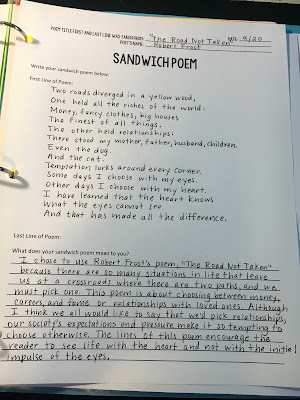 POEM TITLE/FIRST AND LAST LINE WAS TAKEN FROM: "The Road Not Taken" 9/20
POET'S NAME: Robert Frost
SANDWICH POEM
Write your sandwich poem below:
First Line of Poem:
Two roads diverged in a yellow wood,
One held all the riches of the world:
Money, fancy clothes, big houses
The finest of all things.
The other held relationships:
There stood my mother, father, husband, children,
Even the dog.
And the cat.
Temptation lurks around every corner.
Some days I choose with my eyes
Other days I choose with my heart.
I have learned that the heart knows
What the eyes cannot see
And that has made all the difference.
Last Line of Poem:
What does your sandwich poem mean to you?
I chose to use Robert Frost's poem, "The Road Not Taken"
because there are so many situations in life that leave
us at a crossroads where there are two paths, and we
must pick one. This poem is about choosing between money,
careers, and fame or relationships with loved ones. Although
I think we all would like to say that we'd pick relationships,
our society's expectations and pressure make it so tempting to
choose otherwise. The lines of this poem encourage the
reader to see life with the heart and not with the initial
impulse of the eyes.